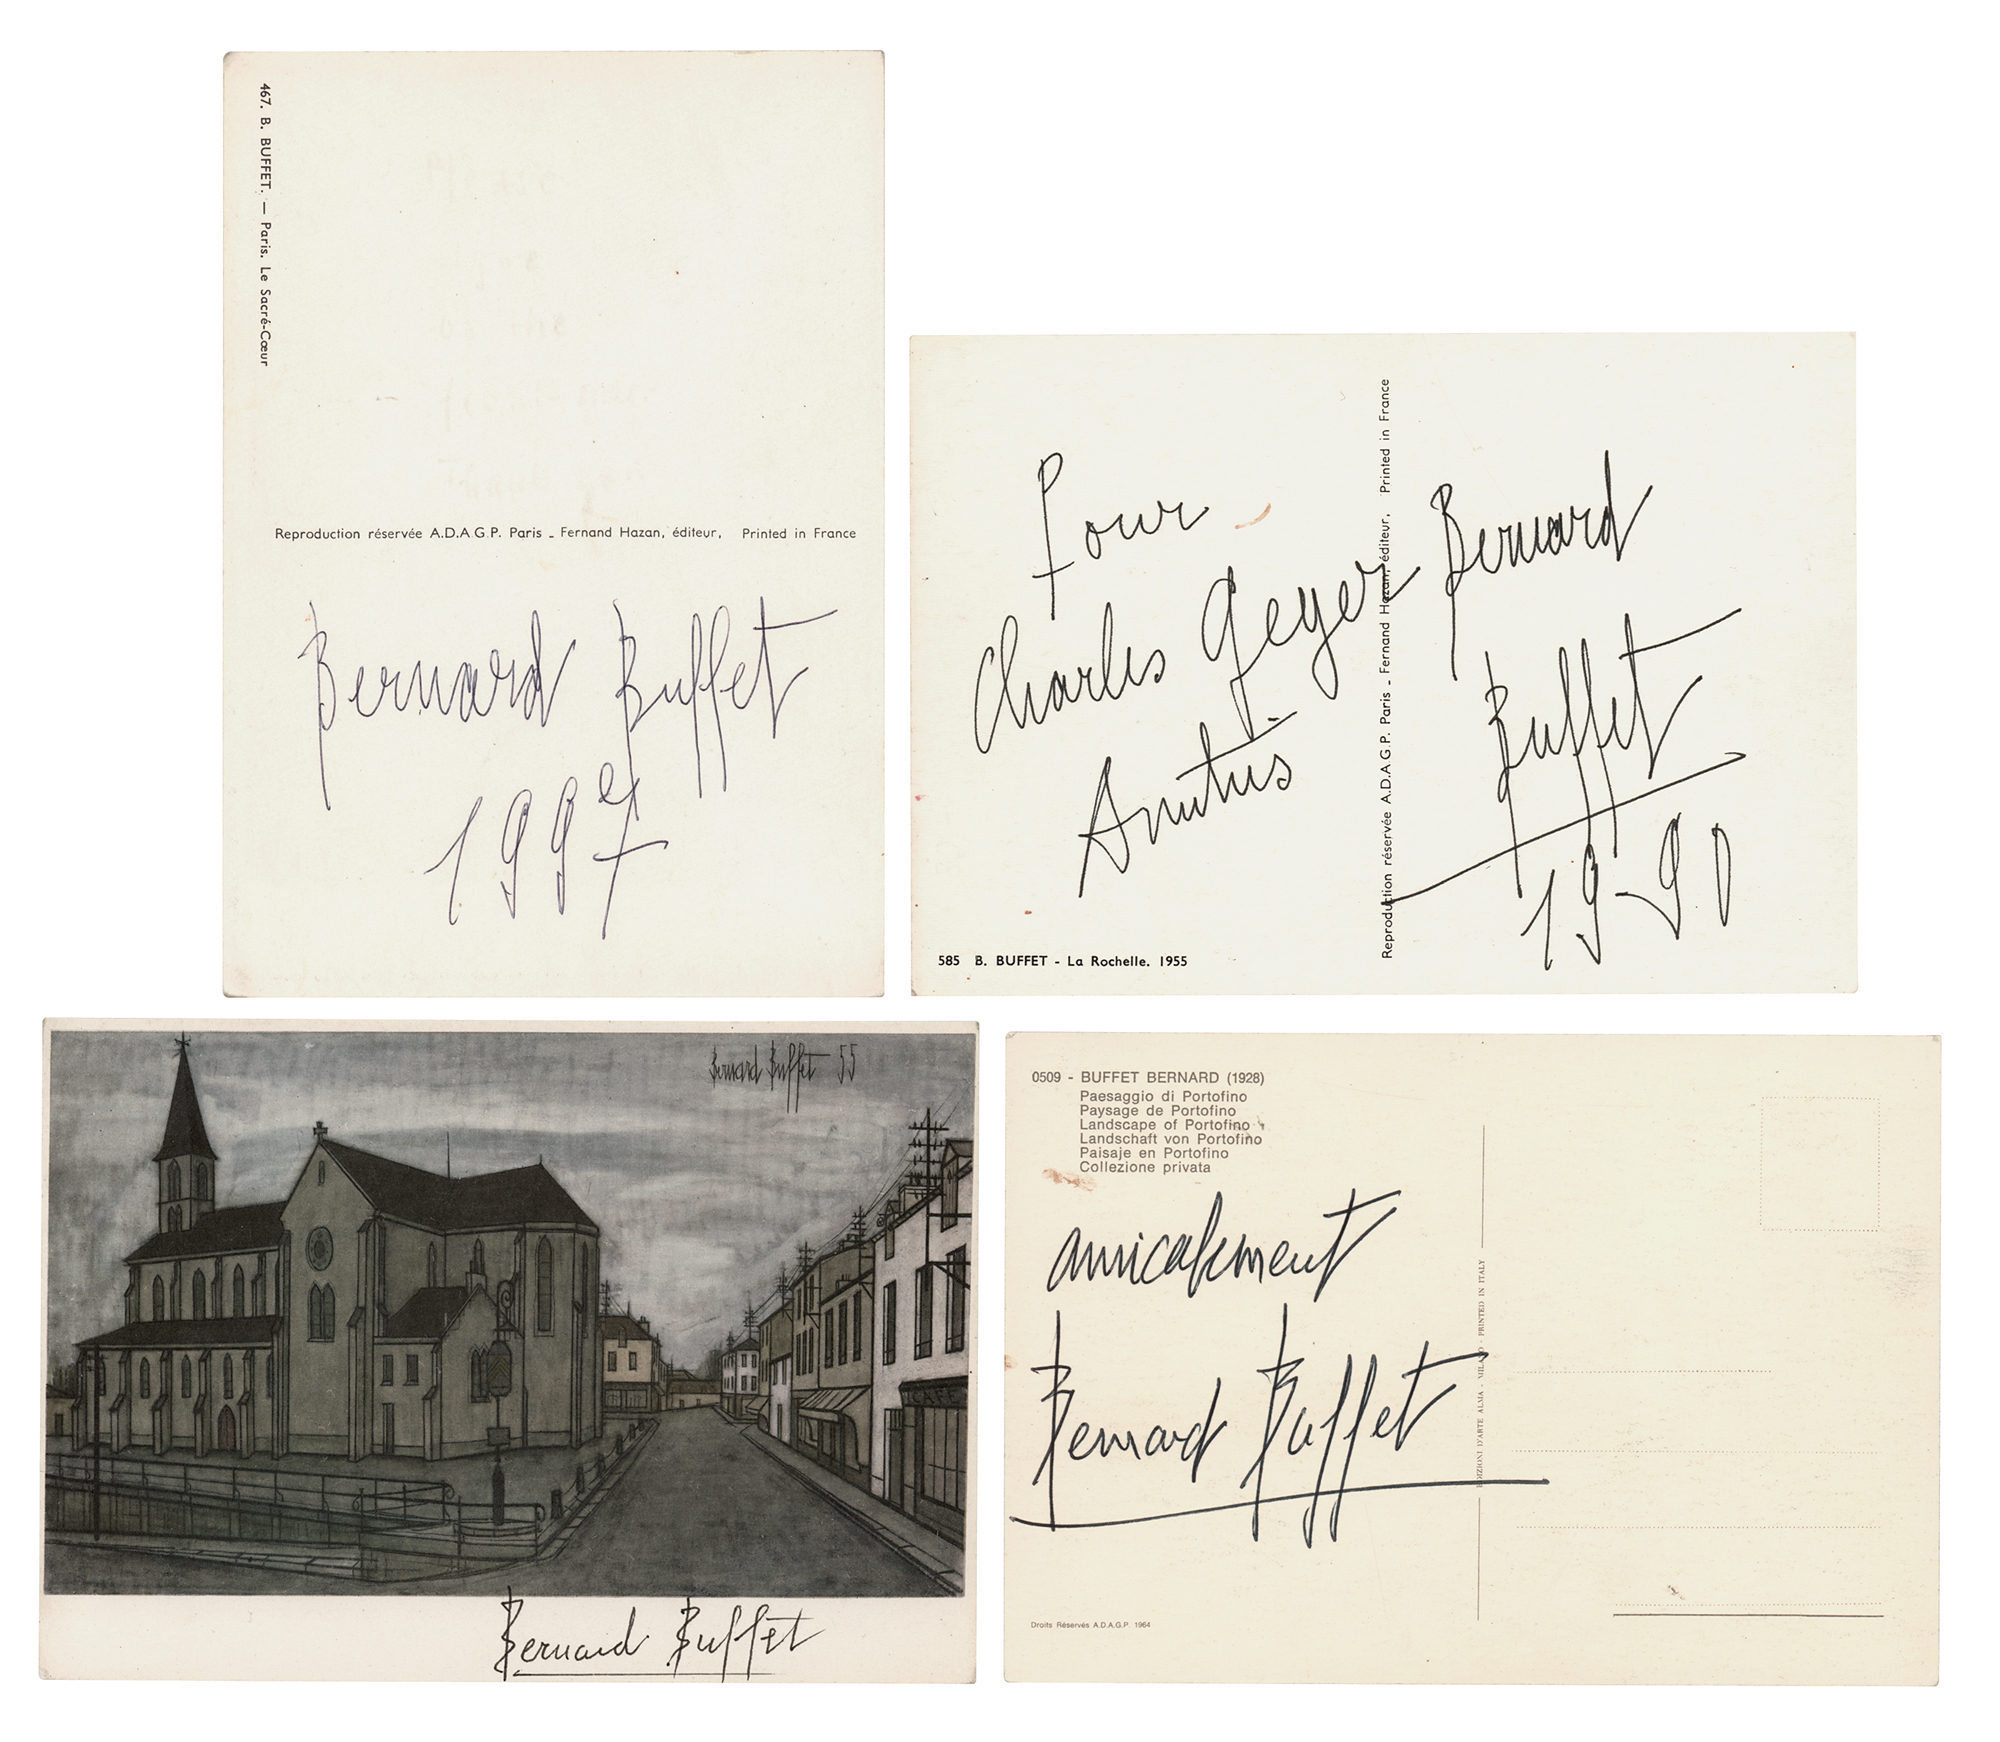 467. B. BUFFET. — Paris. Le Sacré-Cœur
Reproduction réservée A.D.A.G.P. Paris - Fernand Hazan, éditeur, Printed in France
Bernard Buffet
1997
Pour
Charles Geyer
Amitiés
Bernard
Buffet
19-90
Reproduction réservée A.D.A.G.P. Paris - Fernand Hazan, éditeur, Printed in France
585 B. BUFFET - La Rochelle. 1955
Bernard Buffet 55
CAFE
Bernard Buffet
0509 - BUFFET BERNARD (1928)
Paesaggio di Portofino
Paysage de Portofino
Landscape of Portofino
Landschaft von Portofino
Paisaje en Portofino
Collezione privata
amicalement
Bernard Buffet
EDIZIONI D'ARTE ALMA - MILANO - PRINTED IN ITALY
Droits Réservés A.D.A.G.P. 1964